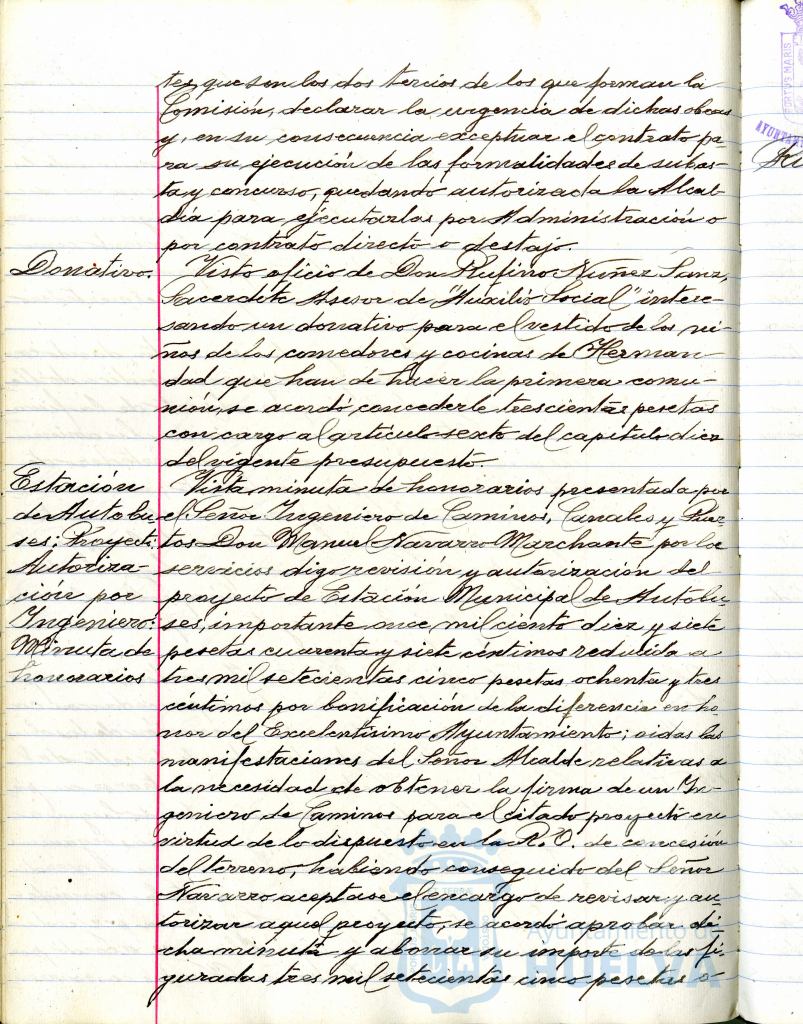 tes, que son los dos tercios de los que forman la
Comisión, declarar la urgencia de dichas obras
y, en su consecuencia exceptuar el contrato pa
ra su ejecución de las formalidades de subas-
ta y concurso, quedando autorizada la Alcal-
día para ejecutarlas por Administración o
por contrato directo o destajo.
Donativo.
Visto oficio de Don Rufino Nuñez Sanz,
Sacerdote Asesor de "Auxilio Social" intere-
sando un donativo para el vestido de los ni-
ños de los comedores y cocinas de Herman-
dad que han de hacer la primera comu-
nión, se acordó concederle trescientas pesetas
con cargo al artículo sexto del capitulo diez
del vigente presupuesto.
Estación
de Autobu
ses: Proyecto:
Autoriza-
ción por
Ingeniero:
Minuta de
honorarios
Vista minuta de honorarios presentada por
el Señor Ingeniero de Caminos, Canales y Puer-
tos Don Manuel Navarro Marchante por los
servicios digo revisión y autorización del
proyecto de Estación Municipal de Autobu-
ses, importante once mil ciento diez y siete
pesetas cuarenta y siete céntimos reducida a
tres mil setecientas cinco pesetas ochenta y tres
céntimos por bonificación de la diferencia en ho-
nor del Excelentísimo Ayuntamiento; oidas las
manifestaciones del Señor Alcalde relativas a
la necesidad de obtener la firma de un In-
geniero de Caminos para el citado proyecto en
virtud de lo dispuesto en la R.O. de concesión
del terreno, habiendo conseguido del Señor
Navarro aceptase el encargo de revisar y au-
torizar aquel proyecto, se acordó aprobar di-
cha minuta y abonar su importe de las fi-
guradas tres mil setecientas cinco pesetas o
Ayuntamiento de
HUELVA
PORTUS MARIS
AYUNTAM